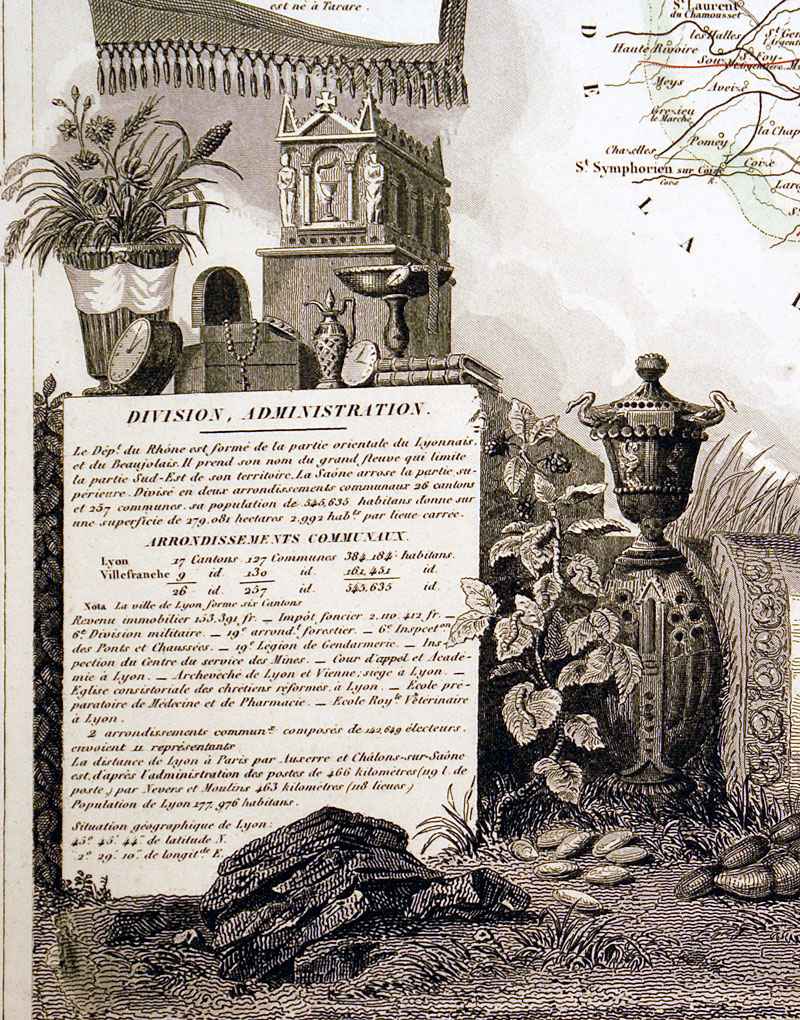 est né à Tarare.
St. Laurent
du Chamousset
les Halles
Haute Rivoire
Meys
Aveize
Grezieu
le Marché
la Chap
Pomey
Chazelles
St. Symphorien sur Coise
Coise
Coise R.
Lare
D
E
L
A
DIVISION, ADMINISTRATION.
Le Dépt. du Rhône est formé de la partie orientale du Lyonnais
et du Beaujolais. Il prend son nom du grand fleuve qui limite
la partie Sud-Est de son territoire. La Saône arrose la partie su-
périeure. Divisé en deux arrondissements communaux 26 cantons
et 257 communes. sa population de 545,635 habitans donne sur
une superficie de 279.081 hectares 2.992 habts. par lieue carrée.
ARRONDISSEMENTS COMMUNAUX.
Lyon 17 Cantons. 127 Communes 384,184 habitans.
Villefranche 9 id. 130 id. 161,451 id.
26 id. 257 id. 545,635 id.
Nota La ville de Lyon forme six Cantons
Revenu immobilier 153,391 fr. — Impôt foncier 2.110.412 fr. —
6e. Division militaire. — 19e. arrond. forestier. — 6e. Inspecton.
des Ponts et Chaussées. — 19e. Légion de Gendarmerie. — Ins-
pection du Centre du service des Mines. — Cour d'appel et Acadé-
mie à Lyon. — Archevêché de Lyon et Vienne; siège à Lyon. —
Eglise consistoriale des chrétiens réformés, à Lyon. — Ecole pré-
paratoire de Médecine et de Pharmacie. — Ecole Royle. Vétérinaire
à Lyon.
2 arrondissements communx. composés de 142,649 électeurs.
envoient 11 représentants
La distance de Lyon à Paris par Auxerre et Châlons-sur-Saône
est, d'après l'administration des postes de 466 kilomètres (119 l. de
poste,) par Nevers et Moulins 463 kilomètres (118 lieues.)
Population de Lyon 177,976 habitans.
Situation géographique de Lyon:
45°. 45'. 44". de latitude N.
2°. 29'. 10". de longitde. E.